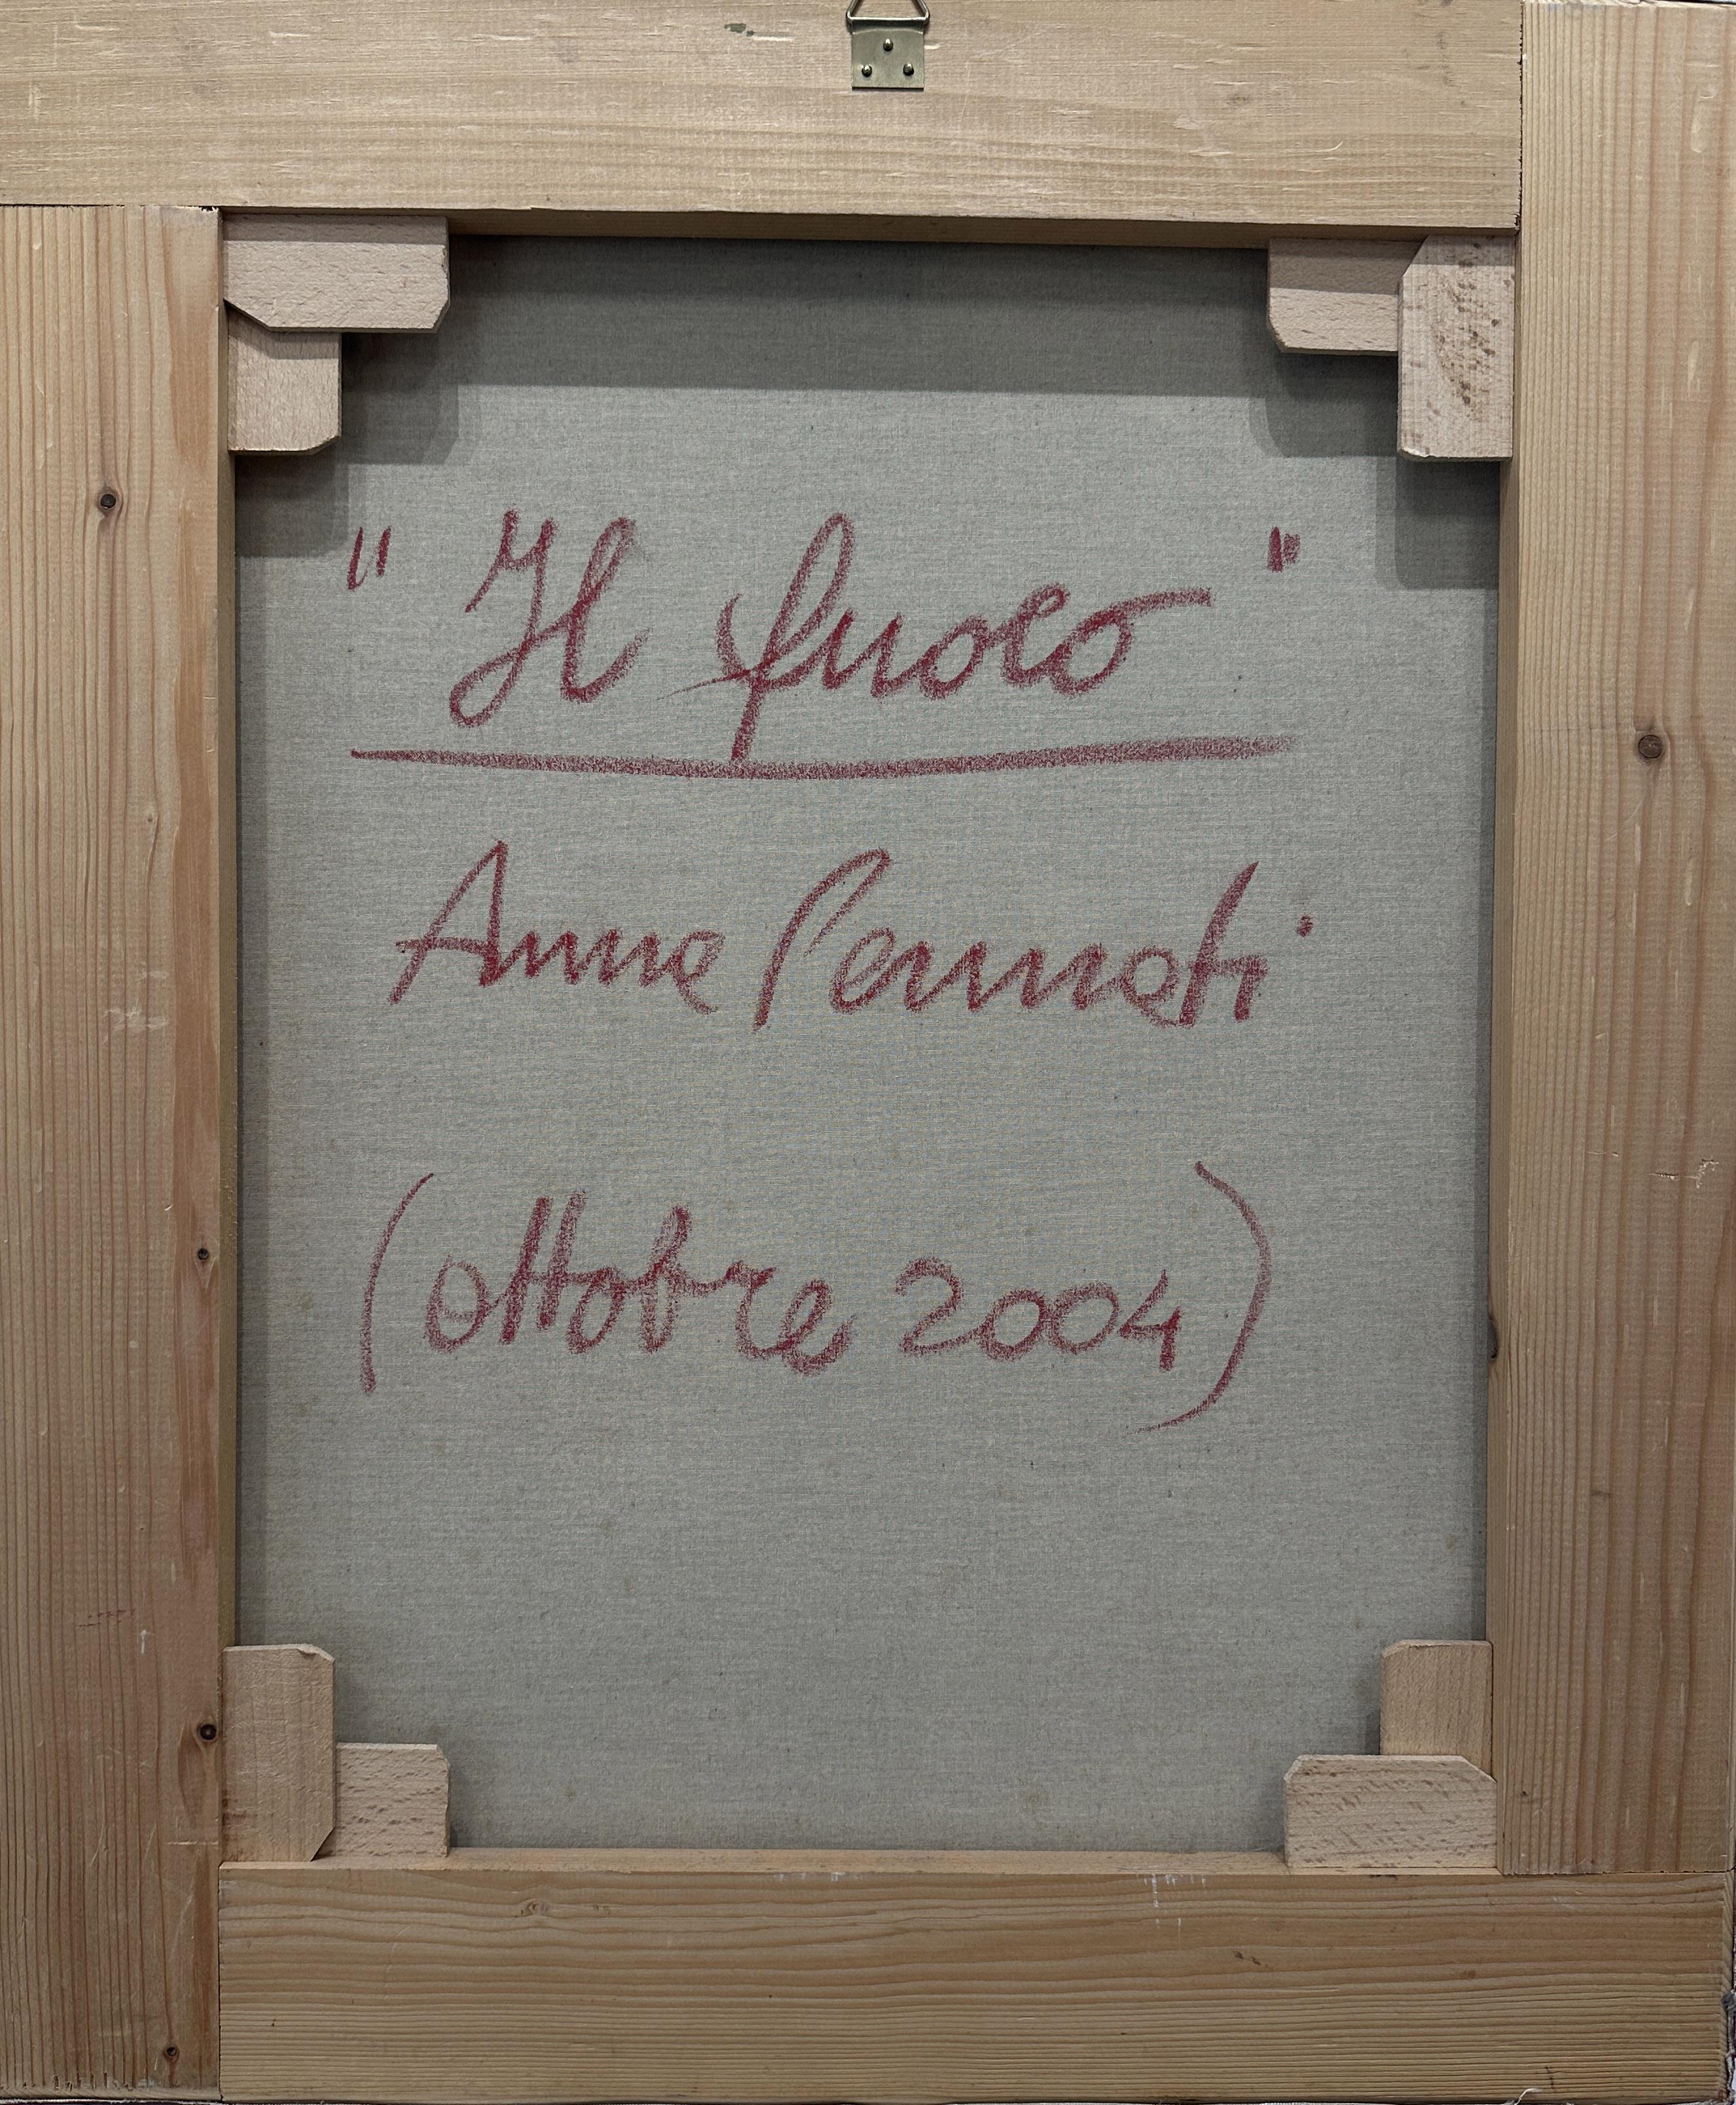 "Il fuoco"
Anna Pennati
(ottobre 2004)